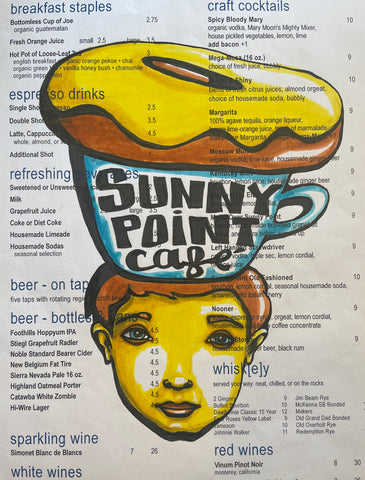 breakfast staples
Bottomless Cup of Joe 2.75
organic guatemalan
Fresh Orange Juice small 2.5 large 3.5
Hot Pot of Loose-Leaf
english breakfast organic orange pekoe • chai
organic green • vanilla honey bush • chamomile
organic
espresso drinks
Single Shot 2.5
Double Shot
Latte, Cappuccino
whole, almond, or
Additional Shot
refreshing beverages
Sweetened or Unsweetened
Milk
Grapefruit Juice large 3.5
Coke or Diet Coke
Housemade Limeade
Housemade Sodas
seasonal selection
beer - on tap
five taps with rotating regional craft
beer - bottles & cans
Foothills Hoppyum IPA 4.5
Stiegl Grapefruit Radler 4.5
Noble Standard Bearer Cider 4.5
New Belgium Fat Tire 4.5
Sierra Nevada Pale 16 oz. 4.5
Highland Oatmeal Porter 4.5
Catawba White Zombie 4.5
Hi-Wire Lager 4.5
sparkling wine
Simonet Blanc de Blancs 7 26
white wines
SUNNY
POINT
café
craft cocktails
Spicy Bloody Mary 10
organic vodka, Mary Moon's Mighty Mixer,
house pickled vegetables, lemon, lime
add bacon +1
Mega-Mosa (16 oz.) 9
choice of fresh juice, bubbly
Shiny
blend of fresh citrus juices, almond orgeat,
choice of housemade soda, bubbly
Margarita 10
100% agave tequila, orange liqueur,
lime-orange juice, of marmalade
Margarita
Moscow Mule 9
organic vodka, lime juice, housemade ginger beer
Kentucky Mule
bourbon, lemon juice, housemade ginger beer
Left Handed Screwdriver 9
vodka, triple sec, lemon cordial,
Old Fashioned 10
bourbon, lemon cordial, seasonal housemade soda,
cherry
Nooner 9
orgeat, lemon cordial,
coffee concentrate
Stormy 9
ginger beer, black rum
whisk[e]y
served your way: neat, chilled, or on the rocks
2 Gingers 9 Jim Beam Rye
Bulleit Bourbon 10 McKenna SB Bonded
Dewar's Classic 15 Year 12 Makers
Four Roses Yellow Label 9 Old Grand Dad Bonded
Jameson 10 Old Overholt Rye
Johnnie Walker 11 Redemption Rye
red wines
Vinum Pinot Noir 8 30
monterey, california